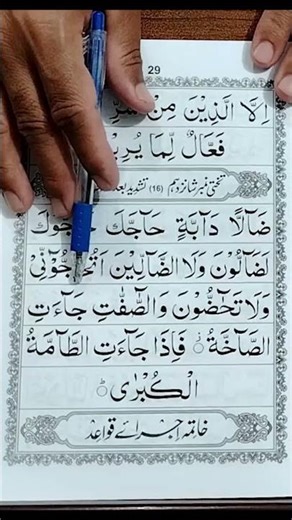 29
اِلَّا الَّذِيْنَ مِنْ
فَعَّالٌ لِّمَا يُرِيْ
تختی نمبر شانزدہم (16) تشدید بعد
ضَآلًّا دَآبَّةٍ حَآجَّكَ
لَضَآلُّوْنَ وَلَا الضَّآلِّيْنَ اَتُحَآجُّوْٓنِّيْ
وَلَا تَحٰٓضُّوْنَ وَالصّٰٓفّٰتِ جَآءَتِ
الصَّآخَّةُ ۫ فَاِذَا جَآءَتِ الطَّآمَّةُ
الْكُبْرٰى ۖ
خاتمہ اجرائے قواعد